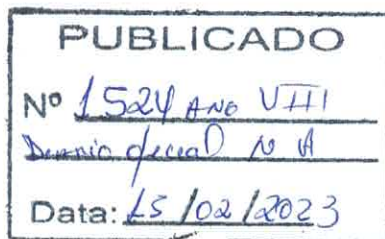 PUBLICADO
Nº 1524 ANO VIII
Diario oficial N A
Data: 15/02/2023